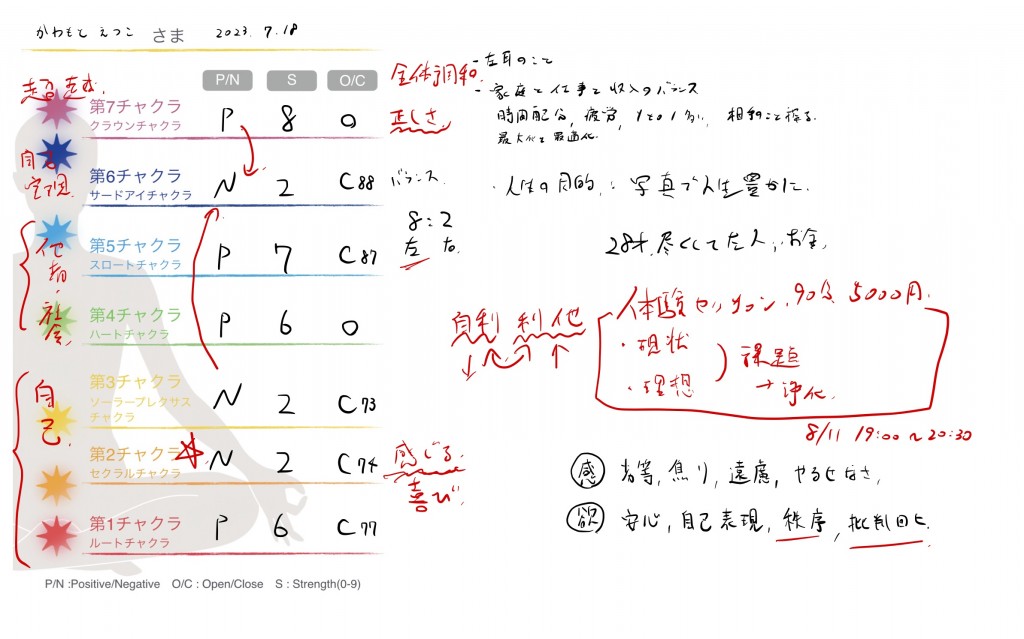 かわもと えつこ さま 2023. 7. 18
P/N S O/C
全体調和
・左耳のこと
・家庭と仕事と収入のバランス
時間配分, 疲労,
最大化と最適化
第7チャクラ
クラウンチャクラ
P 8 O
正しさ
自己
実現
第6チャクラ
サードアイチャクラ
N 2 C88
バランス
・人生の目的 : 写真で人生豊かに.
8 : 2
左 右
28才, 尽くして
他者・社会
第5チャクラ
スロートチャクラ
P 7 C87
第4チャクラ
ハートチャクラ
P 6 O
自利 利他
体験セッション, 90分, 5000円.
・現状
・理想
課題
→ 浄化
8/11 19:00〜20:30
自己
第3チャクラ
ソーラープレクサス
チャクラ
N 2 C73
第2チャクラ
セクラルチャクラ
N 2 C74
感じる
喜び
第1チャクラ
ルートチャクラ
P 6 C77
感 劣等, 焦り, 遠慮, やるせなさ,
欲 安心, 自己表現, 秩序, 批判回ヒ.
P/N :Positive/Negative O/C : Open/Close S : Strength(0-9)